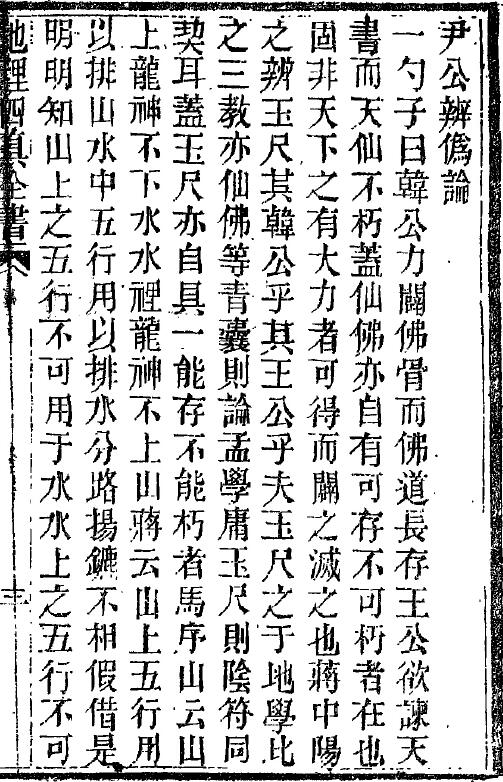 尹公辨僞論
一勺子曰韓公力闢佛骨而佛道長存王公欲諫天
書而天仙不朽蓋仙佛亦自有可存不可朽者在也
固非天下之有大力者可得而闢之滅之也蔣中陽
之辨玉尺其韓公乎其王公乎夫玉尺之于地學比
之三教亦仙佛等青囊則論孟學庸玉尺則陰符同
契耳蓋玉尺亦自具一能存不能朽者馬序山云山
上龍神不下水水裡龍神不上山蔣云山上五行用
以排山水中五行用以排水分路揚鑣不相假借是
明明知山上之五行不可用于水水上之五行不可
地理四真全書
三